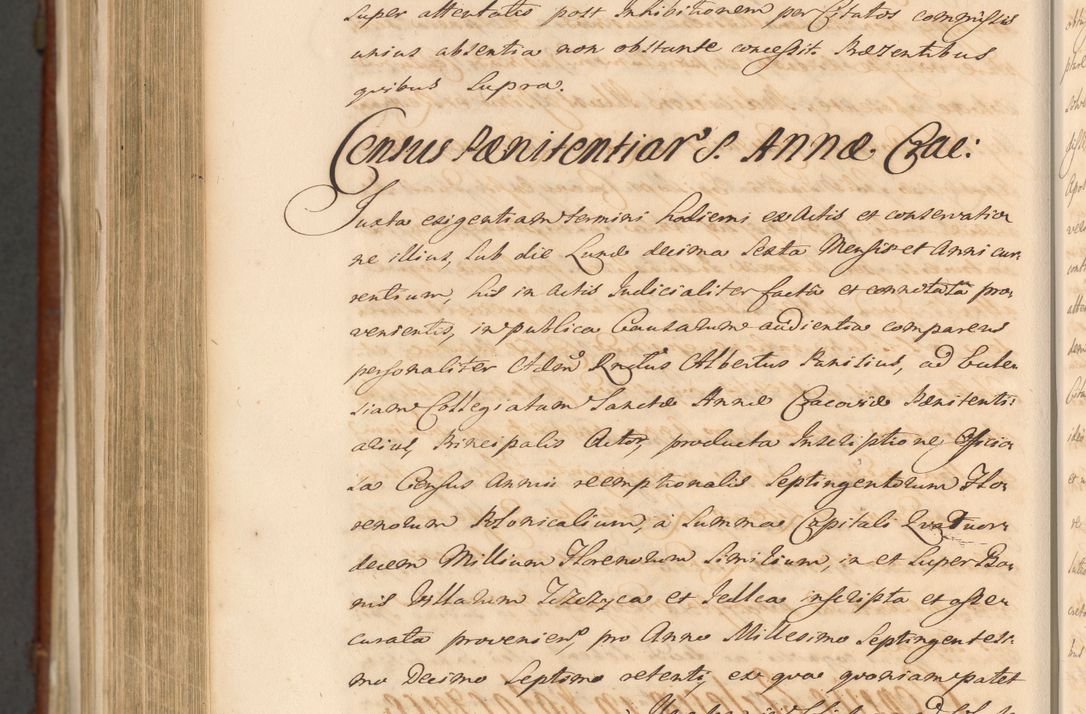 super attentatis post Inhibitionem per Citatos commissis
unius absentia non obstante concessit. Præsentibus
quibus supra.
Census Pænitentiar: S. Annæ Crac:
Juxta exigentiam termini hodierni ex Actis et conservatio
ne illius, sub die Lunæ decima Sexta Mensis et Anni cur
rentium, his in Actis Judicialiter facta et connotata pro
venientis, in publica Causarum audientia comparens
personaliter Adm: Rndus Albertus Panisius, ad Eccle
siam Collegiatam Sanctæ Annæ Cracoviæ Pænitenti
arius, Principalis Actor, producta Inscriptione
Census Annui reemptionalis Septingentorum Flo
renorum Polonicalium, a Summa Capitali Quatuor
decem Millium Florenorum Similium, in et Super Bo
nis Villarum et Jedlca inscripta et
curata proveniens, pro Anno Millesimo Septingentesi
mo Decimo Septimo retenti, ex quo quoniam patet